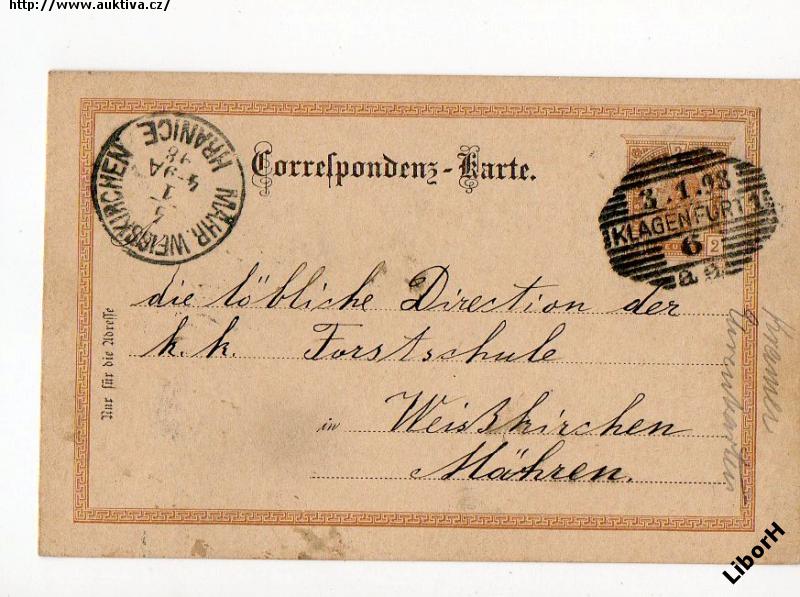 http://www.auktiva.cz/
Correspondenz-Karte.
MÄHR. WEISSKIRCHEN
HRANICE
5
1
4-9A
98
2
3.1.98
KLAGENFURT 1
6
a a
2
die löbliche Direction der
k. k. Forstschule
in Weißkirchen
Mähren.
Nur für die Adresse
LiborH